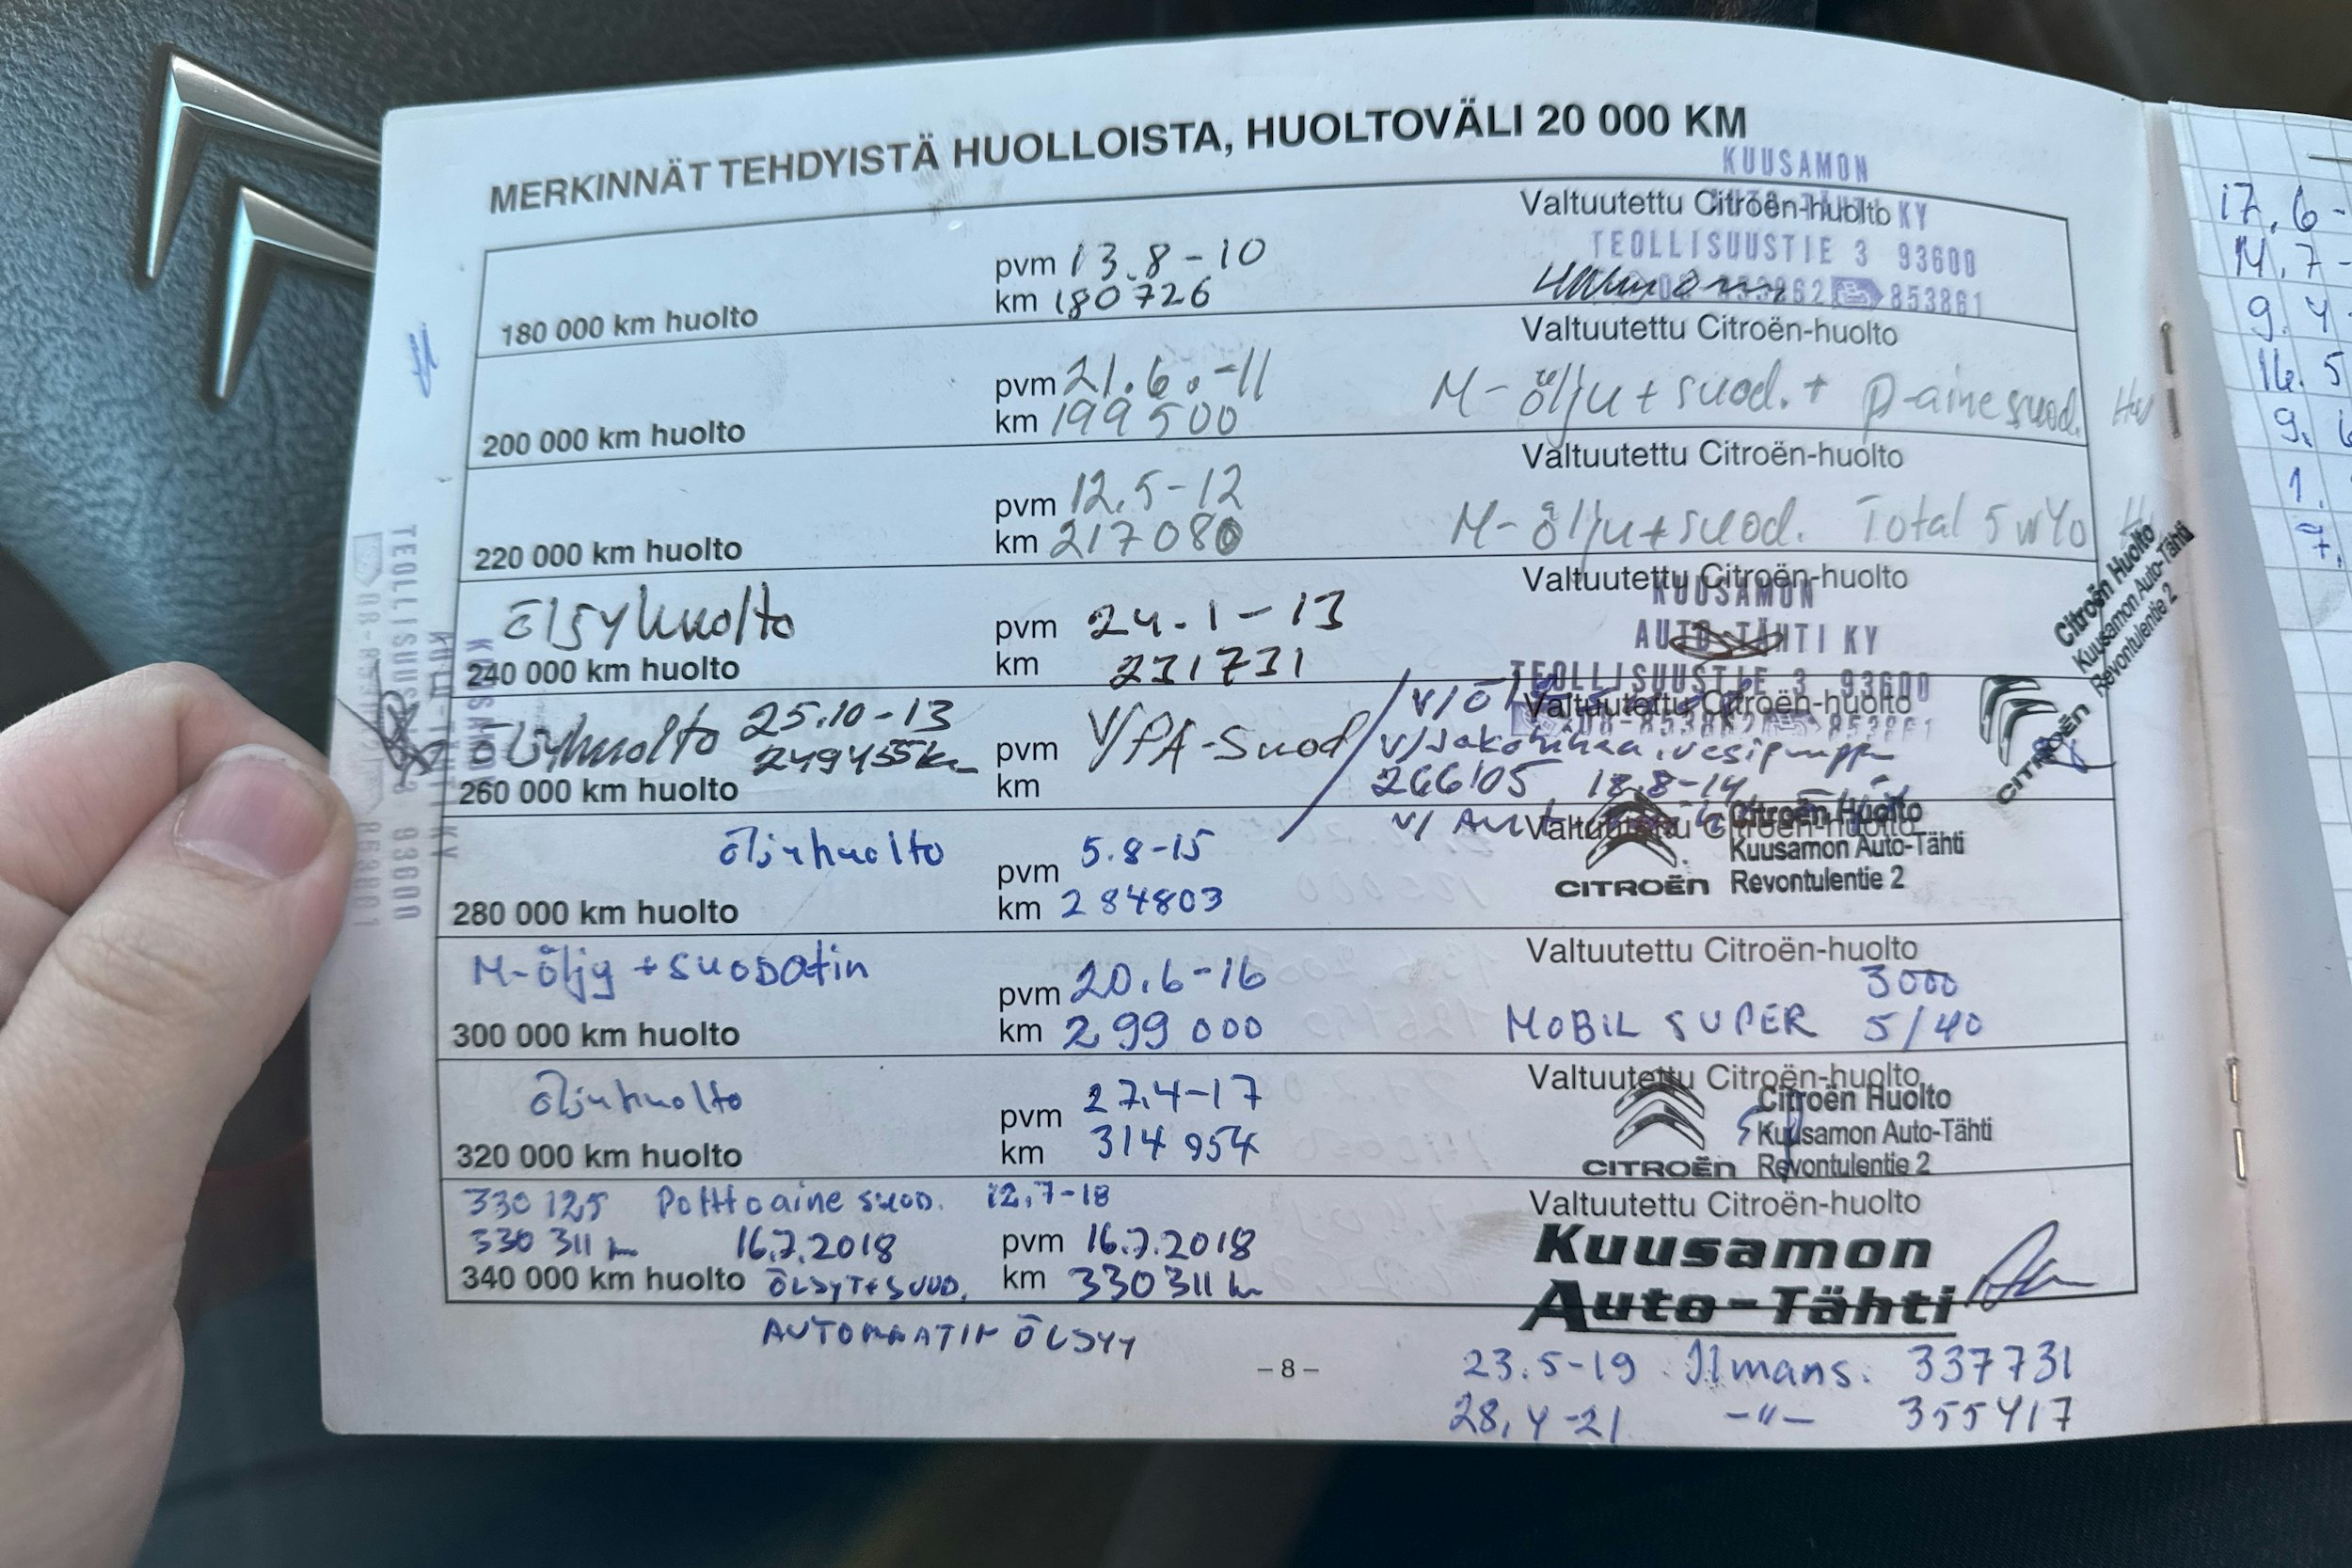 MERKINNÄT TEHDYISTÄ HUOLLOISTA, HUOLTOVÄLI 20 000 KM
KUUSAMON
Valtuutettu Citroën-huolto KY
TEOLLISUUSTIE 3 93600
853861
pvm 13.8-10
km 180726
180 000 km huolto
Valtuutettu Citroën-huolto
pvm 21.6.-11
km 199500
M-öljy + suod. + p-aine suod.
200 000 km huolto
Valtuutettu Citroën-huolto
pvm 12.5-12
km 217080
M-öljy + suod. Total 5w40
220 000 km huolto
Valtuutettu Citroën-huolto
KUUSAMON
AUTO-TÄHTI KY
TEOLLISUUSTIE 3 93600
08-853862 853861
Öljyhuolto
pvm 24.1-13
km 231731
240 000 km huolto
Valtuutettu Citroën-huolto
Öljyhuolto 25.10-13
249455km
pvm V/PA-suod
km
V/Jakohihna, vesipumppu
266105 18.8-14
260 000 km huolto
Citroën Huolto
Kuusamon Auto-Tähti
Revontulentie 2
CITROËN
Valtuutettu Citroën-huolto
Öljyhuolto
pvm 5.8-15
km 284803
Citroën Huolto
Kuusamon Auto-Tähti
CITROËN Revontulentie 2
280 000 km huolto
Valtuutettu Citroën-huolto
M-öljy + suodatin
pvm 20.6-16
km 299 000
3000
MOBIL SUPER 5/40
300 000 km huolto
Valtuutettu Citroën-huolto
Öljyhuolto
pvm 27.4-17
km 314 954
Citroën Huolto
Kuusamon Auto-Tähti
CITROËN Revontulentie 2
320 000 km huolto
Valtuutettu Citroën-huolto
330 125 Polttoaine suod. 12.7-18
330 311 km 16.7.2018
pvm 16.7.2018
340 000 km huolto ÖLJYT+SUOD.
km 330311 km
Kuusamon
Auto-Tähti
AUTOMAATIN ÖLJYY
– 8 –
23.5-19 Ilmans. 337731
28.4-21 -"- 355417
TEOLLISUUSTIE 3 93600
KUUSAMON
17.6-
14.7-
9.4
16.5
9.6
1.
7.